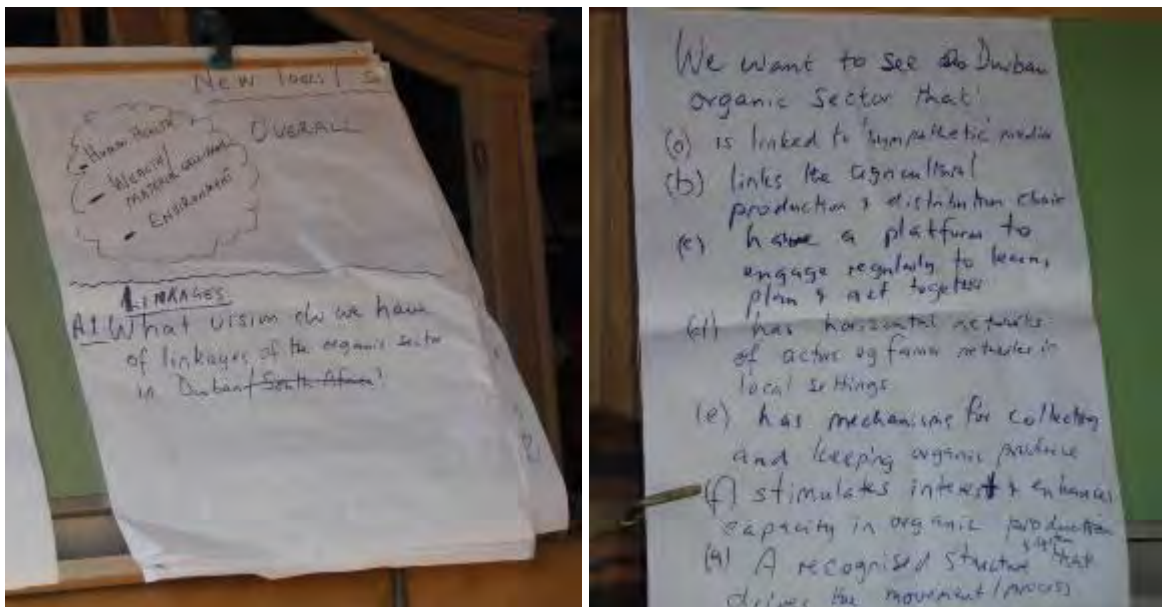 New local s
OVERALL
- HUMAN HEALTH
- WEALTH/
MATERIAL
- ENVIRONMENT
LINKAGES
A1 What vision do we have
of linkages of the organic sector
in Durban/South Africa?
We want to see Durban
organic sector that:
(a) is linked to 'sympathetic' media
(b) links the agricultural
production & distribution chain
(c) have a platform to
engage regularly to learn,
plan & act together
(d) has horizontal networks
of actors eg farmer networks in
local settings
(e) has mechanisms for collecting
and keeping organic produce
(f) stimulates interest & enhances
capacity in organic production
(g) A recognised structure that
drives the movement/process